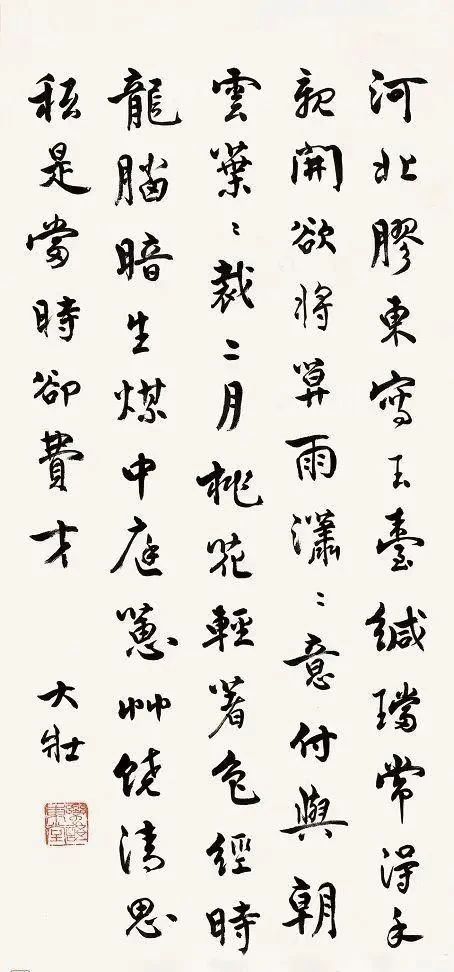 河北膠東寫玉臺緘璫常得手
親開欲將雨瀟〻意付與朝
雲葉〻裁二月桃花輕著色經時
龍腦暗生煤中庭蕙艸饒清思
秖是當時卻費才
大壯